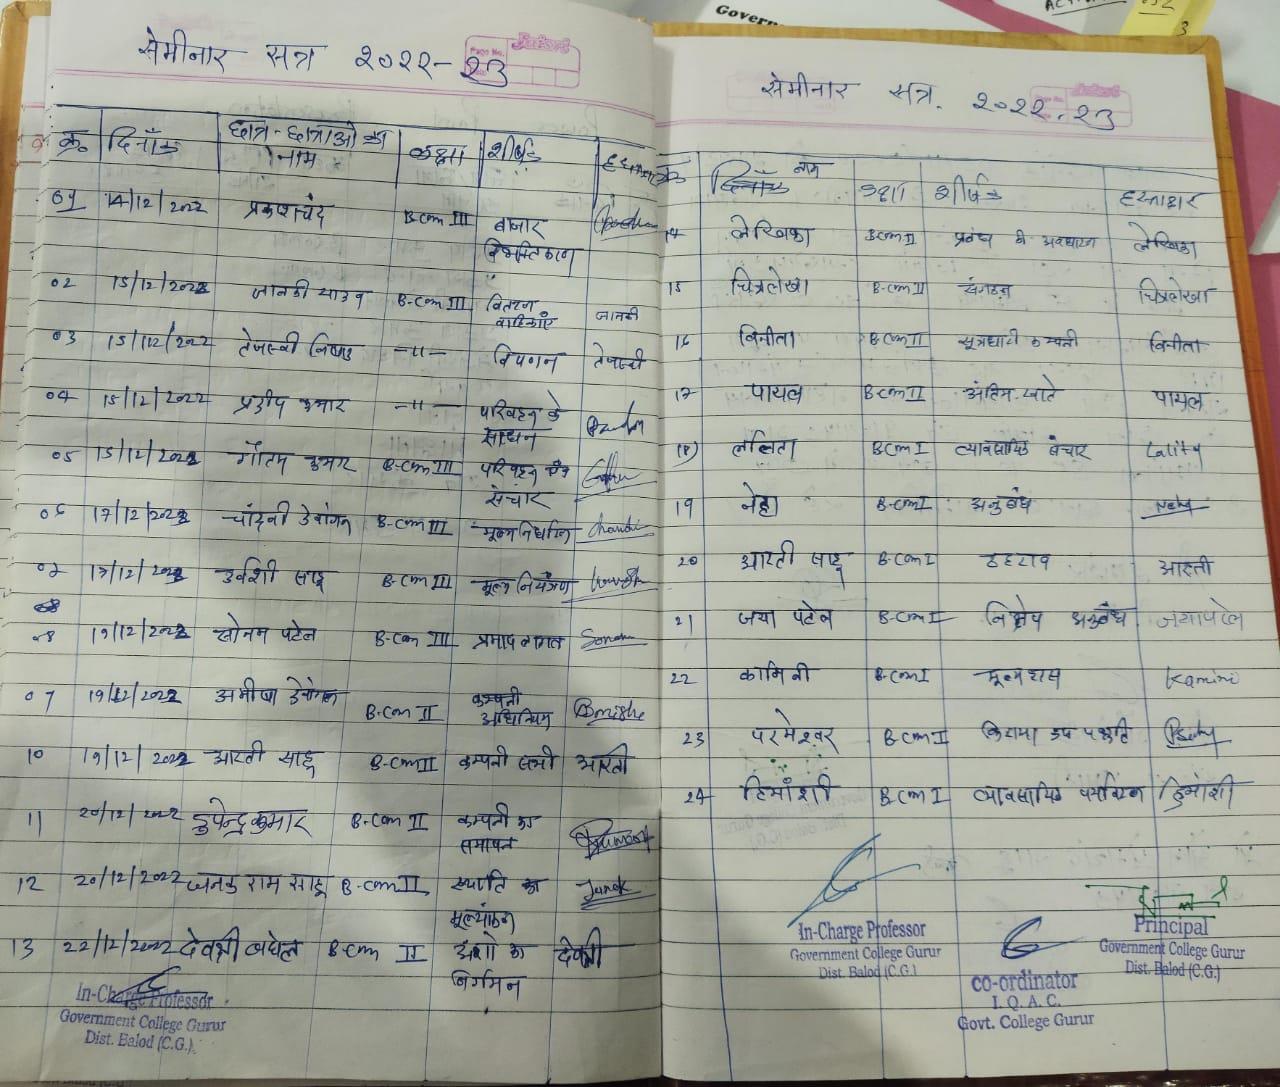 Govern
सेमीनार सत्र २०२२-२३
क्र० दिनाँक छात्र-छात्राओं का नाम कक्षा शीर्षक हस्ताक्षर
01 14/12/2022 प्रकाशचंद B.com III बाजार
02 15/12/2022 जानकी यादव B-com III वितरण वाहिकाएँ जानकी
03 15/12/2022 तेजस्वी निषाद -"- विपणन तेजस्वी
04 15/12/2022 प्रदीप कुमार -"- परिवहन के साधन
05 15/12/2022 गौतम कुमार B-com III परिवहन एवं संचार
06 17/12/2022 चाँदनी देवांगन B-com III मूल्य निर्धारण Chandni
07 17/12/2022 उर्वशी साहू B-com III मूल्य नियंत्रण
08 19/12/2022 सोनम पटेल B-com III प्रमाप लागत Sonam
09 19/12/2022 अमीषा देवांगन B-com II कम्पनी अधिनियम Amisha
10 19/12/2022 आरती साहू B-com II कम्पनी सभी आरती
11 20/12/2022 डुपेन्द्र कुमार B-com II कम्पनी का समापन
12 20/12/2022 जनक राम साहू B-com II ख्याति का मूल्यांकन Janak
13 22/12/2022 देवश्री बघेल B-com II अंशो का निर्गमन देवश्री
In-Charge Professor
Government College Gurur
Dist. Balod (C.G.)
सेमीनार सत्र. २०२२-२३
नाम कक्षा शीर्षक हस्ताक्षर
14 लेखिका B-com II प्रबंध की अवधारणा लेखिका
15 चित्रलेखा B-com II संगठन चित्रलेखा
16 विनीता B-com II सूत्रधारी कम्पनी विनीता
17 पायल B-com II अंतिम खाते पायल
18) ललिता B-com I व्यावसायिक संचार Lality
19 नेहा B-com I अनुबंध Neha
20 आरती साहू B-com I ठहराव आरती
21 जया पटेल B-com I निक्षेप अनुबंध जयापटेल
22 कामिनी B-com I मूल्य ह्रास Kamini
23 परमेश्वर B-com I किराया क्रय पद्धति
24 हिमांशी B-com I व्यावसायिक पर्यावरण हिमांशी
In-Charge Professor
Government College Gurur
Dist. Balod (C.G.)
co-ordinator
I. Q. A. C.
Govt. College Gurur
Principal
Government College Gurur
Dist. Balod (C.G.)